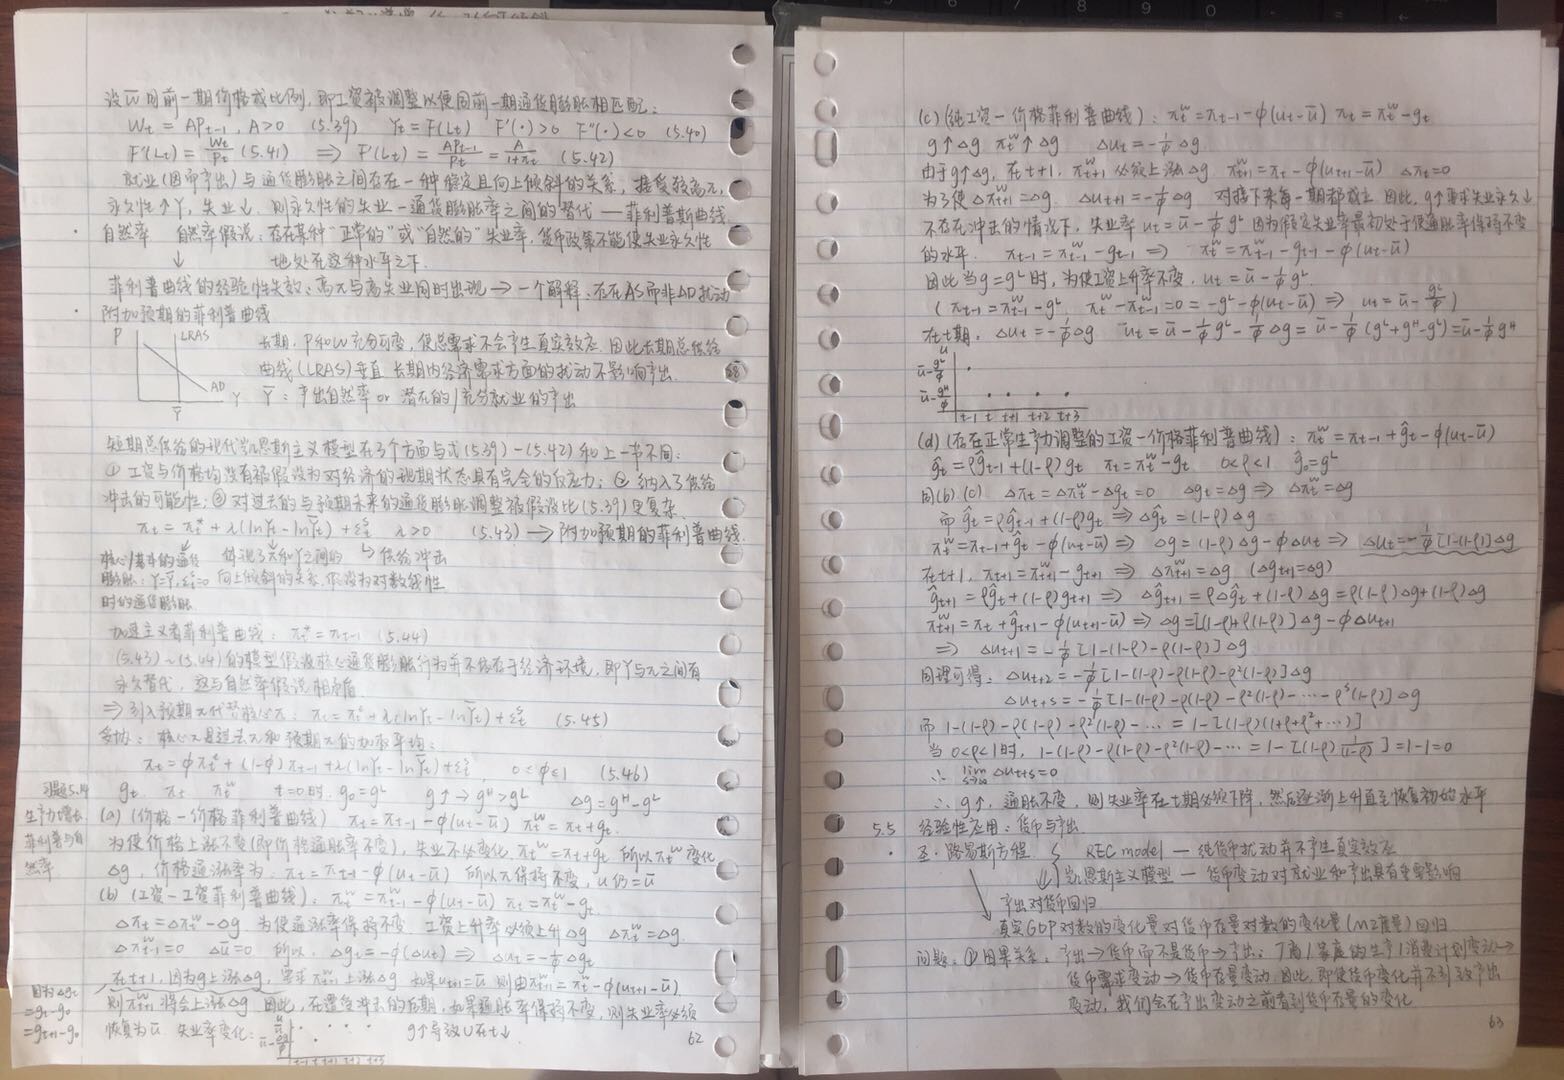 设W̄同前一期价格成比例，即工资被调整以便同前一期通货膨胀相匹配：
Wt = APt-1, A>0 (5.39) Yt = F(Lt) F'(·)>0 F''(·)<0 (5.40)
F'(Lt) = Wt/Pt (5.41) ⇒ F'(Lt) = APt-1/Pt = A/(1+πt) (5.42)
就业(因而产出)与通货膨胀之间存在一种稳定且向上倾斜的关系，接受较高π，
永久性↑Y，失业↓. 则永久性的失业一通货膨胀率之间的替代 — 菲利普斯曲线
· 自然率 自然率假说：存在某种"正常的"或"自然的"失业率，货币政策不能使失业永久性
↓ 地处在这种水平之下.
菲利普曲线的经验性失效：高π与高失业同时出现 → 一个解释：存在AS而非AD扰动
· 附加预期的菲利普曲线
P LRAS AD Y Ȳ
长期，P和W充分可变，使总需求不会产生真实效应. 因此长期总供给
曲线(LRAS)垂直 长期内经济需求方面的扰动不影响产出.
Ȳ：产出自然率 or 潜在的/充分就业的产出
短期总供给的现代凯恩斯主义模型在3个方面与式(5.39)-(5.42)和上一节不同：
① 工资与价格均没有被假设为对经济的现期状态具有完全的反应力；② 纳入了供给
冲击的可能性；③ 对过去的与预期未来的通货膨胀调整被假设比(5.39)更复杂
πt = πt* + λ(lnYt - lnȲt) + εtˢ λ>0 (5.43) → 附加预期的菲利普曲线.
核心/基本的通货 体现了π和Y之间的 ↳ 供给冲击
膨胀：Y=Ȳ, εtˢ=0 向上倾斜的关系，假设为对数线性
时的通货膨胀
加速主义者菲利普曲线：πt* = πt-1 (5.44)
(5.43)~(5.44)的模型假设核心通货膨胀行为并不依存于经济环境，即Y与π之间有
永久替代，这与自然率假说相矛盾
⇒ 引入预期π代替核心π：πt = πtᵉ + λ(lnYt - lnȲt) + εtˢ (5.45)
妥协：核心π是过去π和预期π的加权平均：
πt = ϕπtᵉ + (1-ϕ)πt-1 + λ(lnYt - lnȲt) + εtˢ, 0≤ϕ≤1 (5.46)
习题5.14 gt πt πtʷ t=0时 g₀=gᴸ g↑→gᴴ>gᴸ Δg = gᴴ-gᴸ
生产力增长 (a) (价格一价格菲利普曲线) πt = πt-1 - ϕ(ut-ū) πtʷ = πt+gt.
菲利普与自 为使价格上涨不变(即价格通胀率不变)，失业不必变化 πtʷ = πt+gt 所以πtʷ变化
然率 Δg，价格通涨率为：πt = πt-1 - ϕ(ut-ū) 所以π保持不变，u仍=ū
(b) (工资一工资菲利普曲线)：πtʷ = πt-1ʷ - ϕ(ut-ū) πt = πtʷ - gt
Δπt = Δπtʷ - Δg 为使通涨率保持不变，工资上升率必须上升Δg Δπtʷ = Δg.
Δπt-1ʷ = 0 Δū = 0 所以，Δgt = -ϕ(Δut) ⇒ Δut = -1/ϕ Δgt
在t+1，因为g上涨Δg，要求πt+1ʷ上涨Δg 如果ut+1=ū 则由πt+1ʷ = πtʷ - ϕ(ut+1-ū)
因为Δgt 则πt+1ʷ将会上涨Δg 因此，在遭受冲击的后期，如果通胀率保持不变，则失业率必须
=gt-g₀
=gt+1-g₀ 恢复为ū 失业率变化： u ū ū-Δg/ϕ t-1 t t+1 t+2 t+3 g↑导致U在t↓
62
(c) (纯工资一价格菲利普曲线)：πtʷ = πt-1 - ϕ(ut-ū) πt = πtʷ - gt
g↑Δg πtʷ↑Δg Δut = -1/ϕ Δg
由于g↑Δg，在t+1，πt+1ʷ必须上涨Δg πt+1ʷ = πt - ϕ(ut+1-ū) Δπt=0
为了使Δπt+1ʷ=Δg Δut+1 = -1/ϕ Δg 对接下来每一期都成立 因此，g↑要求失业永久↓
不存在冲击的情况下，失业率ut = ū - 1/ϕ gᴸ 因为假定失业率最初处于使通胀率保持不变
的水平. πt-1 = πt-1ʷ - gt-1 ⇒ πtʷ = πt-1ʷ - gt-1 - ϕ(ut-ū)
因此当g=gᴸ时，为使工资上升率不变，ut = ū - 1/ϕ gᴸ.
(πt-1 = πt-1ʷ - gᴸ πtʷ - πt-1ʷ = 0 = -gᴸ - ϕ(ut-ū) ⇒ ut = ū - gᴸ/ϕ)
在t期，Δut = -1/ϕ Δg ut = ū - 1/ϕ gᴸ - 1/ϕ Δg = ū - 1/ϕ (gᴸ+gᴴ-gᴸ) = ū - 1/ϕ gᴴ
u ū-gᴸ/ϕ ū-gᴴ/ϕ t-1 t t+1 t+2 t+3
(d) (存在正常生产力调整的工资一价格菲利普曲线)：πtʷ = πt-1 + ĝt - ϕ(ut-ū)
ĝt = ρĝt-1 + (1-ρ)gt πt = πtʷ - gt 0<ρ<1 ĝ₀=gᴸ
同(b)(c) Δπt = Δπtʷ - Δgt = 0 Δgt = Δg ⇒ Δπtʷ = Δg
而ĝt = ρĝt-1 + (1-ρ)gt ⇒ Δĝt = (1-ρ)Δg
πtʷ = πt-1 + ĝt - ϕ(ut-ū) ⇒ Δg = (1-ρ)Δg - ϕΔut ⇒ Δut = -1/ϕ [1-(1-ρ)]Δg
在t+1，πt+1 = πt+1ʷ - gt+1 ⇒ Δπt+1ʷ = Δg (Δgt+1=Δg)
ĝt+1 = ρĝt + (1-ρ)gt+1 ⇒ Δĝt+1 = ρΔĝt + (1-ρ)Δg = ρ(1-ρ)Δg + (1-ρ)Δg
πt+1ʷ = πt + ĝt+1 - ϕ(ut+1-ū) ⇒ Δg = [(1-ρ)+ρ(1-ρ)]Δg - ϕΔut+1
⇒ Δut+1 = -1/ϕ [1-(1-ρ)-ρ(1-ρ)]Δg
同理可得：Δut+2 = -1/ϕ [1-(1-ρ)-ρ(1-ρ)-ρ²(1-ρ)]Δg
Δut+s = -1/ϕ [1-(1-ρ)-ρ(1-ρ)-ρ²(1-ρ)-···-ρˢ(1-ρ)]Δg
而 1-(1-ρ)-ρ(1-ρ)-ρ²(1-ρ)-··· = 1-[(1-ρ)(1+ρ+ρ²+···)]
当0<ρ<1时，1-(1-ρ)-ρ(1-ρ)-ρ²(1-ρ)-··· = 1-[(1-ρ) 1/(1-ρ)] = 1-1 = 0
∴ lim s→∞ Δut+s = 0
∴ g↑，通胀不变，则失业率在t期必须下降，然后逐渐上升直至恢复初始水平
5.5 经验性应用：货币与产出
· 圣·路易斯方程 { RBC model — 纯货币扰动并不产生真实效应
凯恩斯主义模型 — 货币变动对就业和产出具有重要影响
产出对货币回归
真实GDP对数的变化量对货币存量对数的变化量(M2度量)回归
问题：①因果关系：产出→货币而不是货币→产出：厂商/家庭的生产/消费计划变动→
货币需求变动→货币存量变动 因此，即使货币变化并不引致产出
变动，我们会在产出变动之前看到货币存量的变化
63